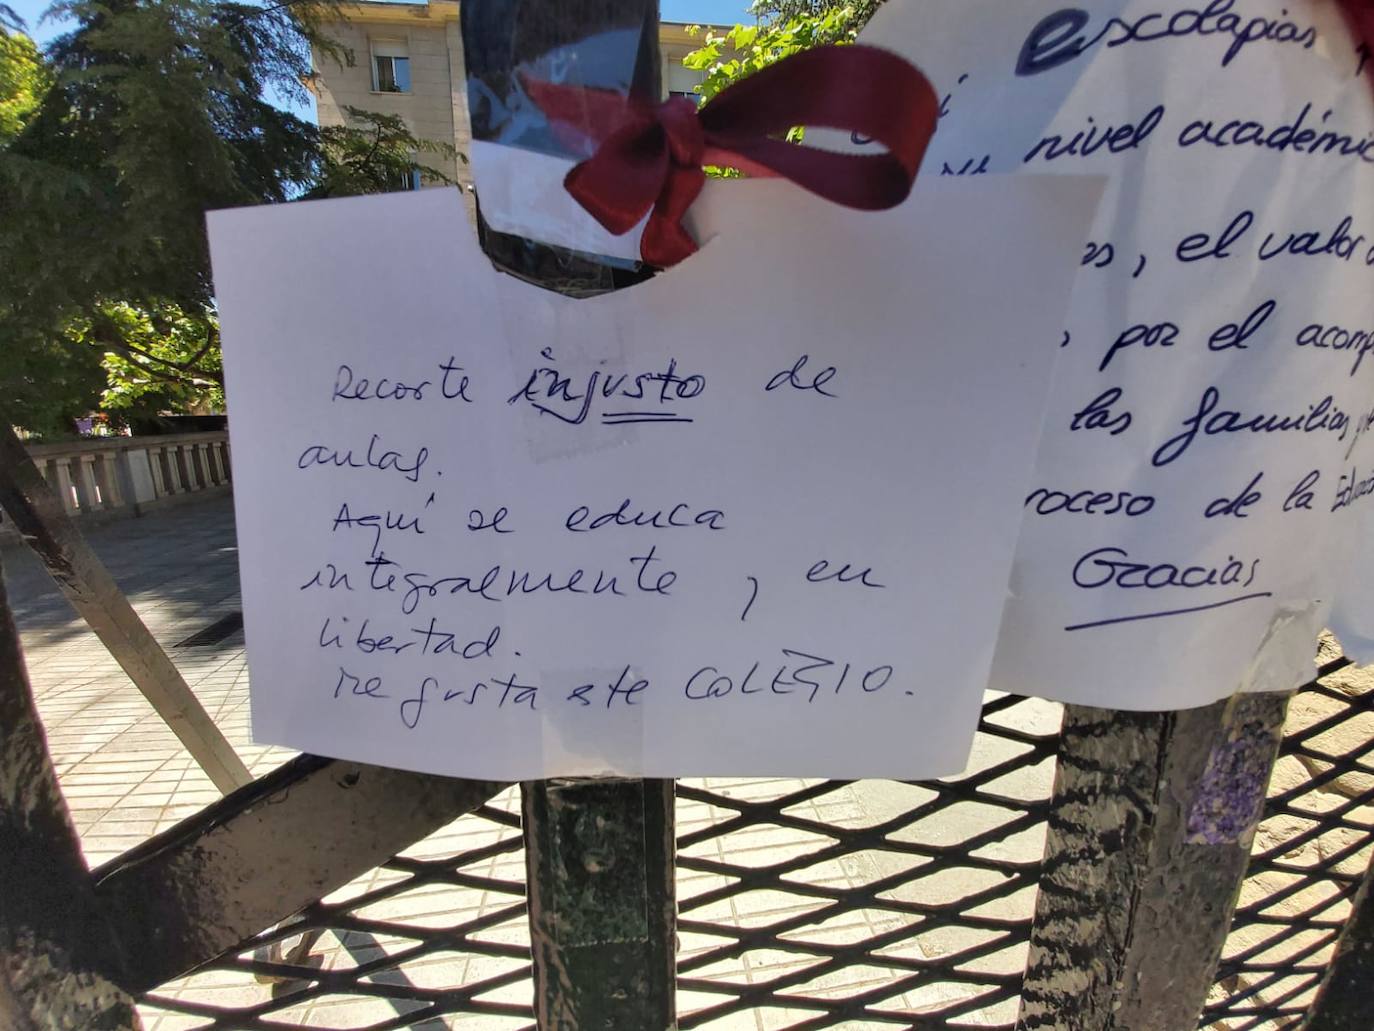 Recorte injusto de
aulas.
Aquí se educa
integralmente, en
libertad.
Me gusta este COLEGIO.
escolapias
nivel académic
es, el valor
por el acomp
las familias
roceso de la Educac
Gracias